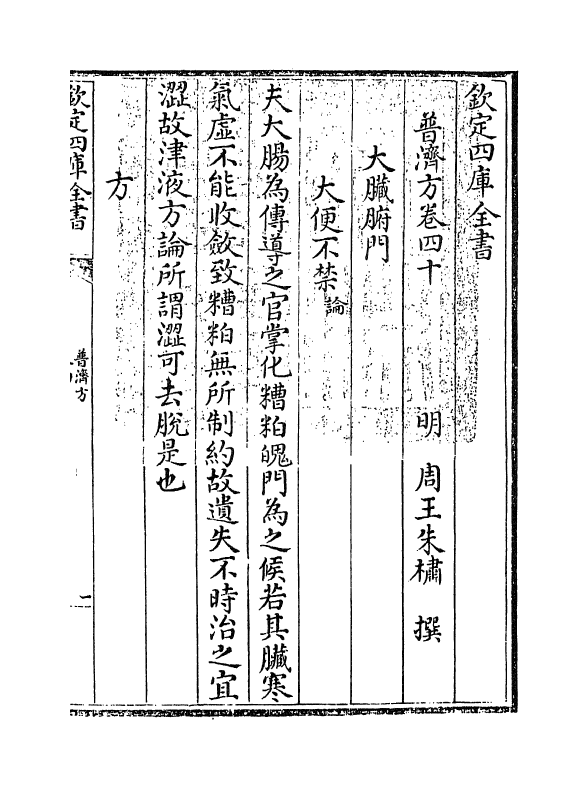 欽定四庫全書
普濟方卷四十
明 周王朱橚 撰
大臟腑門
大便不禁論
夫大腸為傳導之官掌化糟粕魄門為之候若其臟寒
氣虛不能收斂致糟粕無所制約故遺失不時治之宜
澀故津液方論所謂澀可去脫是也
方
欽定四庫全書
普濟方
一